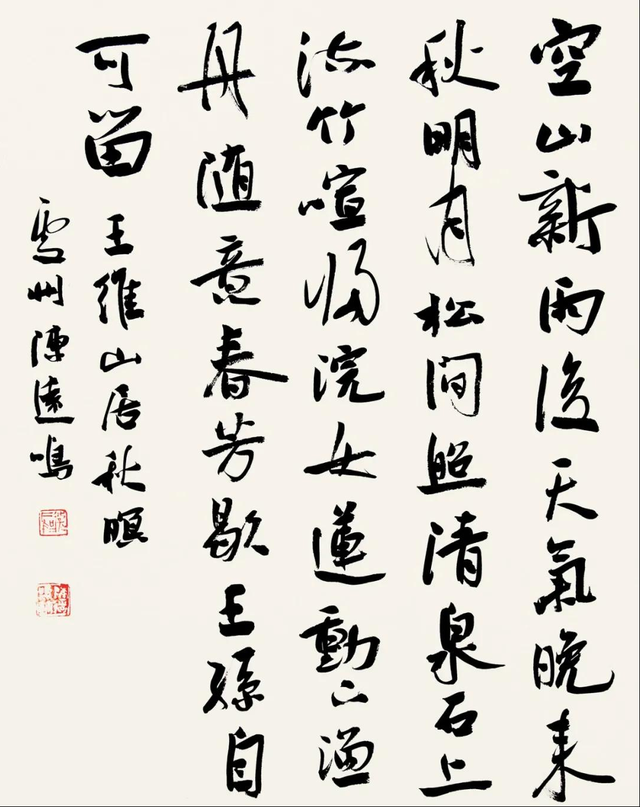 空山新雨後天氣晚来
秋明月松间照清泉石上
流竹喧归浣女蓮動下漁
舟随意春芳歇王孫自
可留 王維山居秋暝
州陳遠鳴